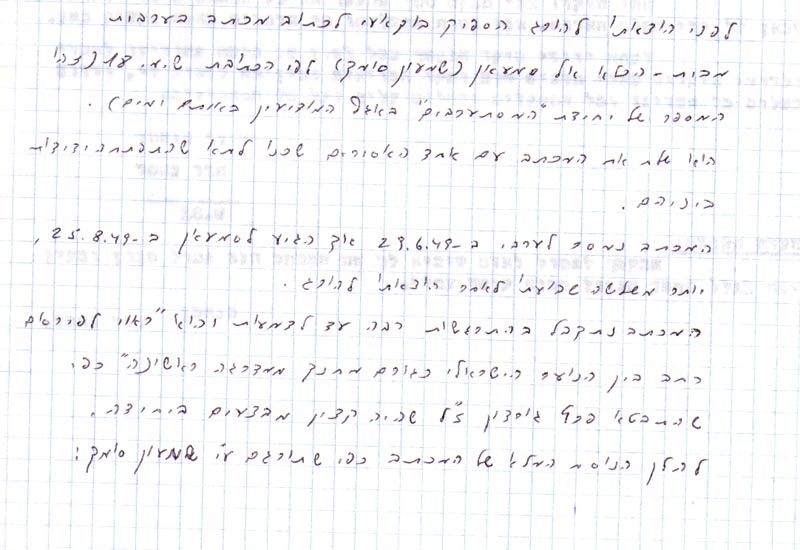 לפני הוצאתו להורג הספיק בוקאעי לכתוב מכתב בערבית
מבית-הכלא אל סמעאן (שמעון סומך) לפי הכתובת ש.מ. 18 (זהו
המספר של יחידת "המסתערבים" באגף המודיעין באותם ימים).
הוא שלח את המכתב עם אחד האסירים שכנו לתא שהתפתחה ידידות
ביניהם.
המכתב נמסר לערבי ב-23.6.49 אך הגיע לסמעאן ב-25.8.49,
יותר משלשה שבועות לאחר הוצאתו להורג.
המכתב נתקבל בהתרגשות רבה עד לדמעות והוא "ראוי לפירסום
רחב בין הנוער הישראלי כגורם מחנך ממדרגה ראשונה" כפי
שהתבטא פרץ גורדון ז"ל שהיה קצין מבצעים ביחידה.
להלן הנוסח המלא של המכתב כפי שתורגם ע"י שמעון סומך: